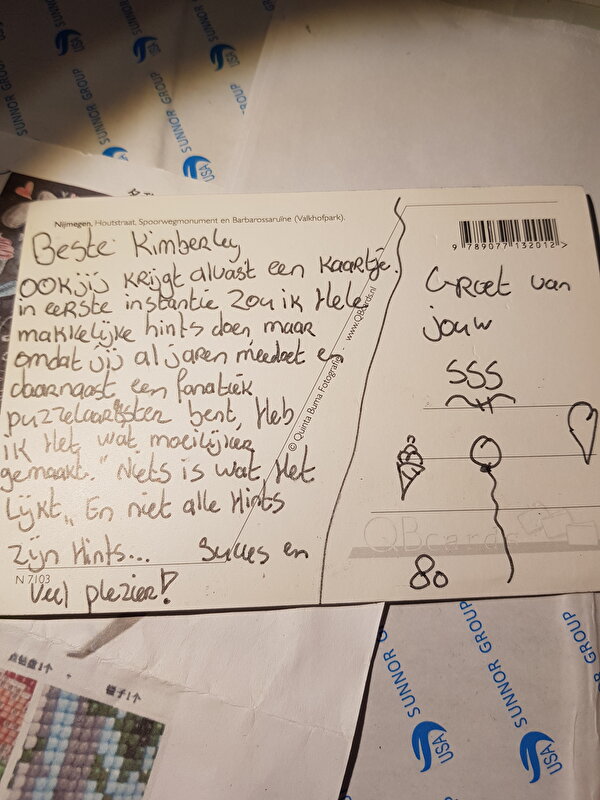 USA SUNNOR GROUP
USA SUNNOR GROUP
USA SUNNOR GROUP
Nijmegen, Houtstraat, Spoorwegmonument en Barbarossaruïne (Valkhofpark).
Beste Kimberley
OOK jij krijgt alvast een kaartje.
in eerste instantie zou ik Hele
makkelijke hints doen maar
omdat jij al jaren meedoet en
daarnaast een fanatiek
puzzelaarster bent, Heb
ik Het wat moeilijker
gemaakt. "Niets is wat Het
Lijkt,, En niet alle Hints
zijn Hints... Sucses en
Veel plezier!
N 7103
© Quinta Buma Fotografie - www.QBcards.nl
9 789077 132012 >
Groet van
jouw
SSS
QBcards
80
点钻盘1个
镊子1个
USA SUNNOR GROUP
USA SUNNOR GROUP